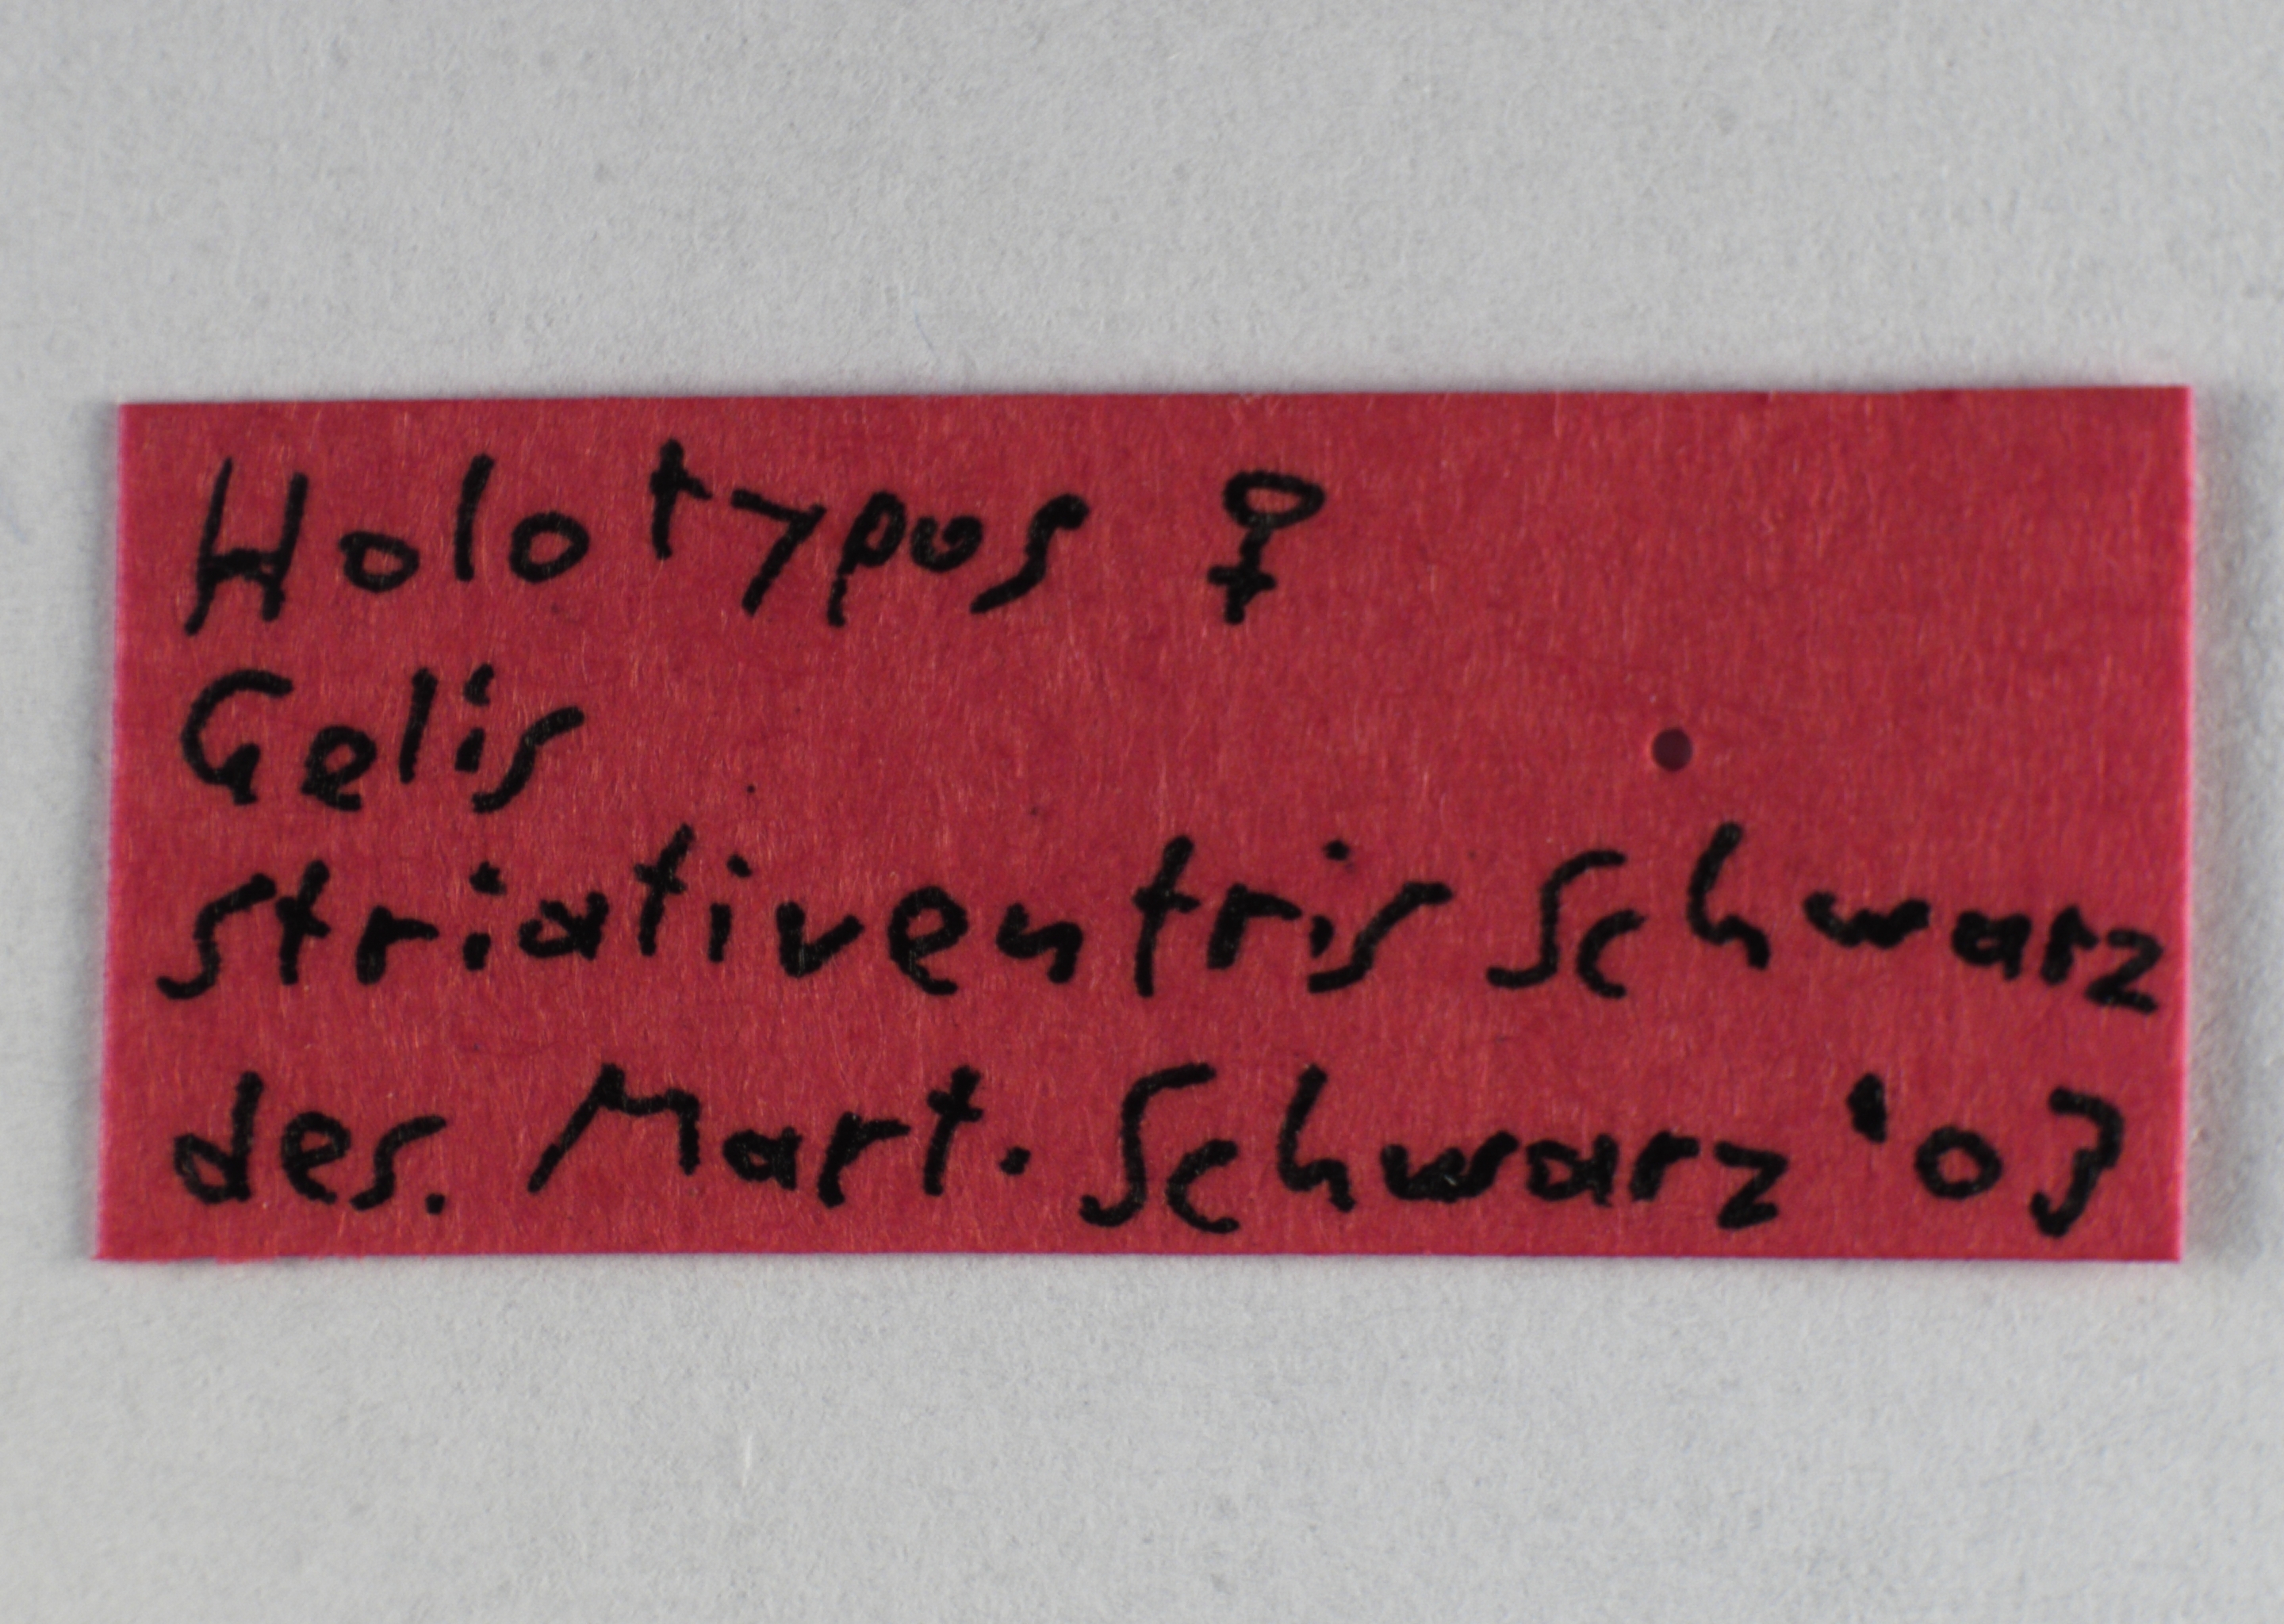 Holotypos ♀
Gelis
striativentris Schwarz
des. Mart. Schwarz '03